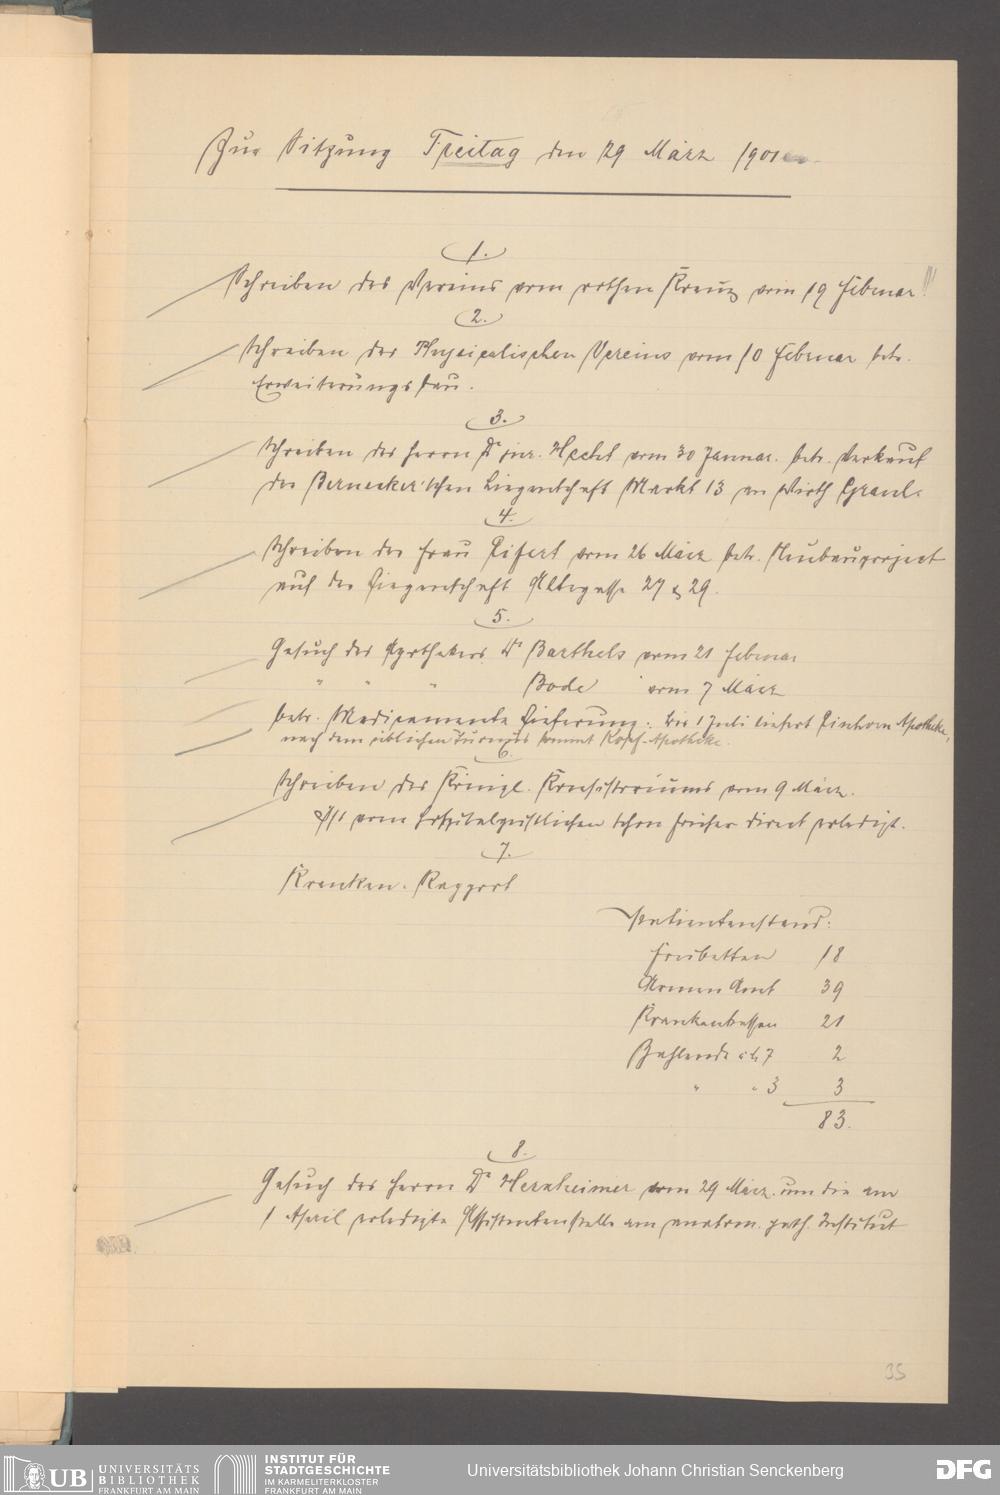 Zur Sitzung Freitag den 29 März 1901
1.
Schreiben des Vereins vom rothen Kreuz vom 19 Februar.
2.
Schreiben des Physicalischen Vereins vom 10 Februar betr.
Erweiterungsbau.
3.
Schreiben des Herrn Dr jur. Hecht vom 30 Januar. betr. Verkauf
der Bernecker'schen Liegenschaft Markt 13 an Wirth
4.
Schreiben der Frau Eifert vom 26 März betr. Neubauproject
auf der Liegenschaft Albegasse 27 & 29.
5.
Gesuch des Apothekers Dr Barthels vom 21 Februar
" " " Bode vom 7 März
betr. Medicamente Lieferung. Bis 1 Juli liefert Einhorn Apotheke,
nach dem üblichen Turnus kommt Kopf-Apotheke.
6.
Schreiben des Königl. Konsistoriums vom 9 März.
Ist vom Hospitalgeistlichen schon früher direct erledigt.
7.
Kranken-Rapport
Patientenstand:
Freibetten 18
Armen Amt 39
Krankenkassen 21
Zahlende à M 7 2
" " 3 3
83.
8.
Gesuch des Herrn Dr Herxheimer vom 29 März um die am
1 April erledigte Assistentenstelle am anatom. path. Institut
35
UB UNIVERSITÄTS
BIBLIOTHEK
FRANKFURT AM MAIN
INSTITUT FÜR
STADTGESCHICHTE
IM KARMELITERKLOSTER
FRANKFURT AM MAIN
Universitätsbibliothek Johann Christian Senckenberg
DFG